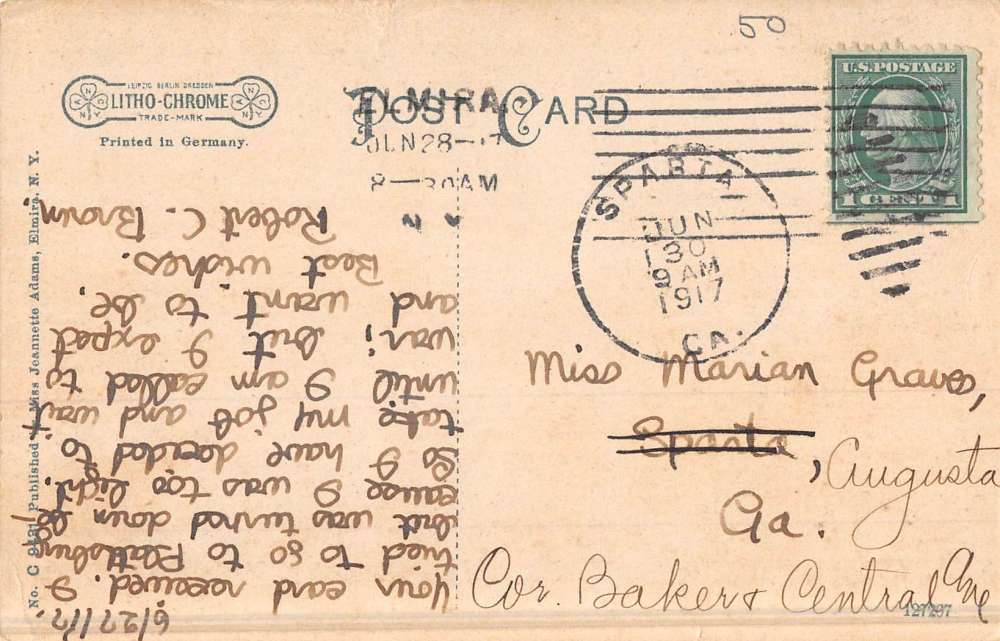 50
LEIPZIG BERLIN DRESDEN
LITHO-CHROME
TRADE-MARK
Printed in Germany.
POST CARD
ELMIRA
JUN 28
8—30AM
SPARTA
JUN
30
9 AM
1917
GA.
U.S. POSTAGE
1 CENT 1
6/27/17.
Your card received. I
tried to go to Plattsburg
but was turned down be
cause I was too light.
So I have decided to
take my job and wait
until I am called to
war; but I expect
and want to be.
Best wishes.
Robert C. Brown.
Miss Marian Graves,
Sparta, Augusta
Ga.
Cor. Baker & Central Ave
127297
No. C 9431 Published by Miss Jeannette Adams, Elmira, N. Y.